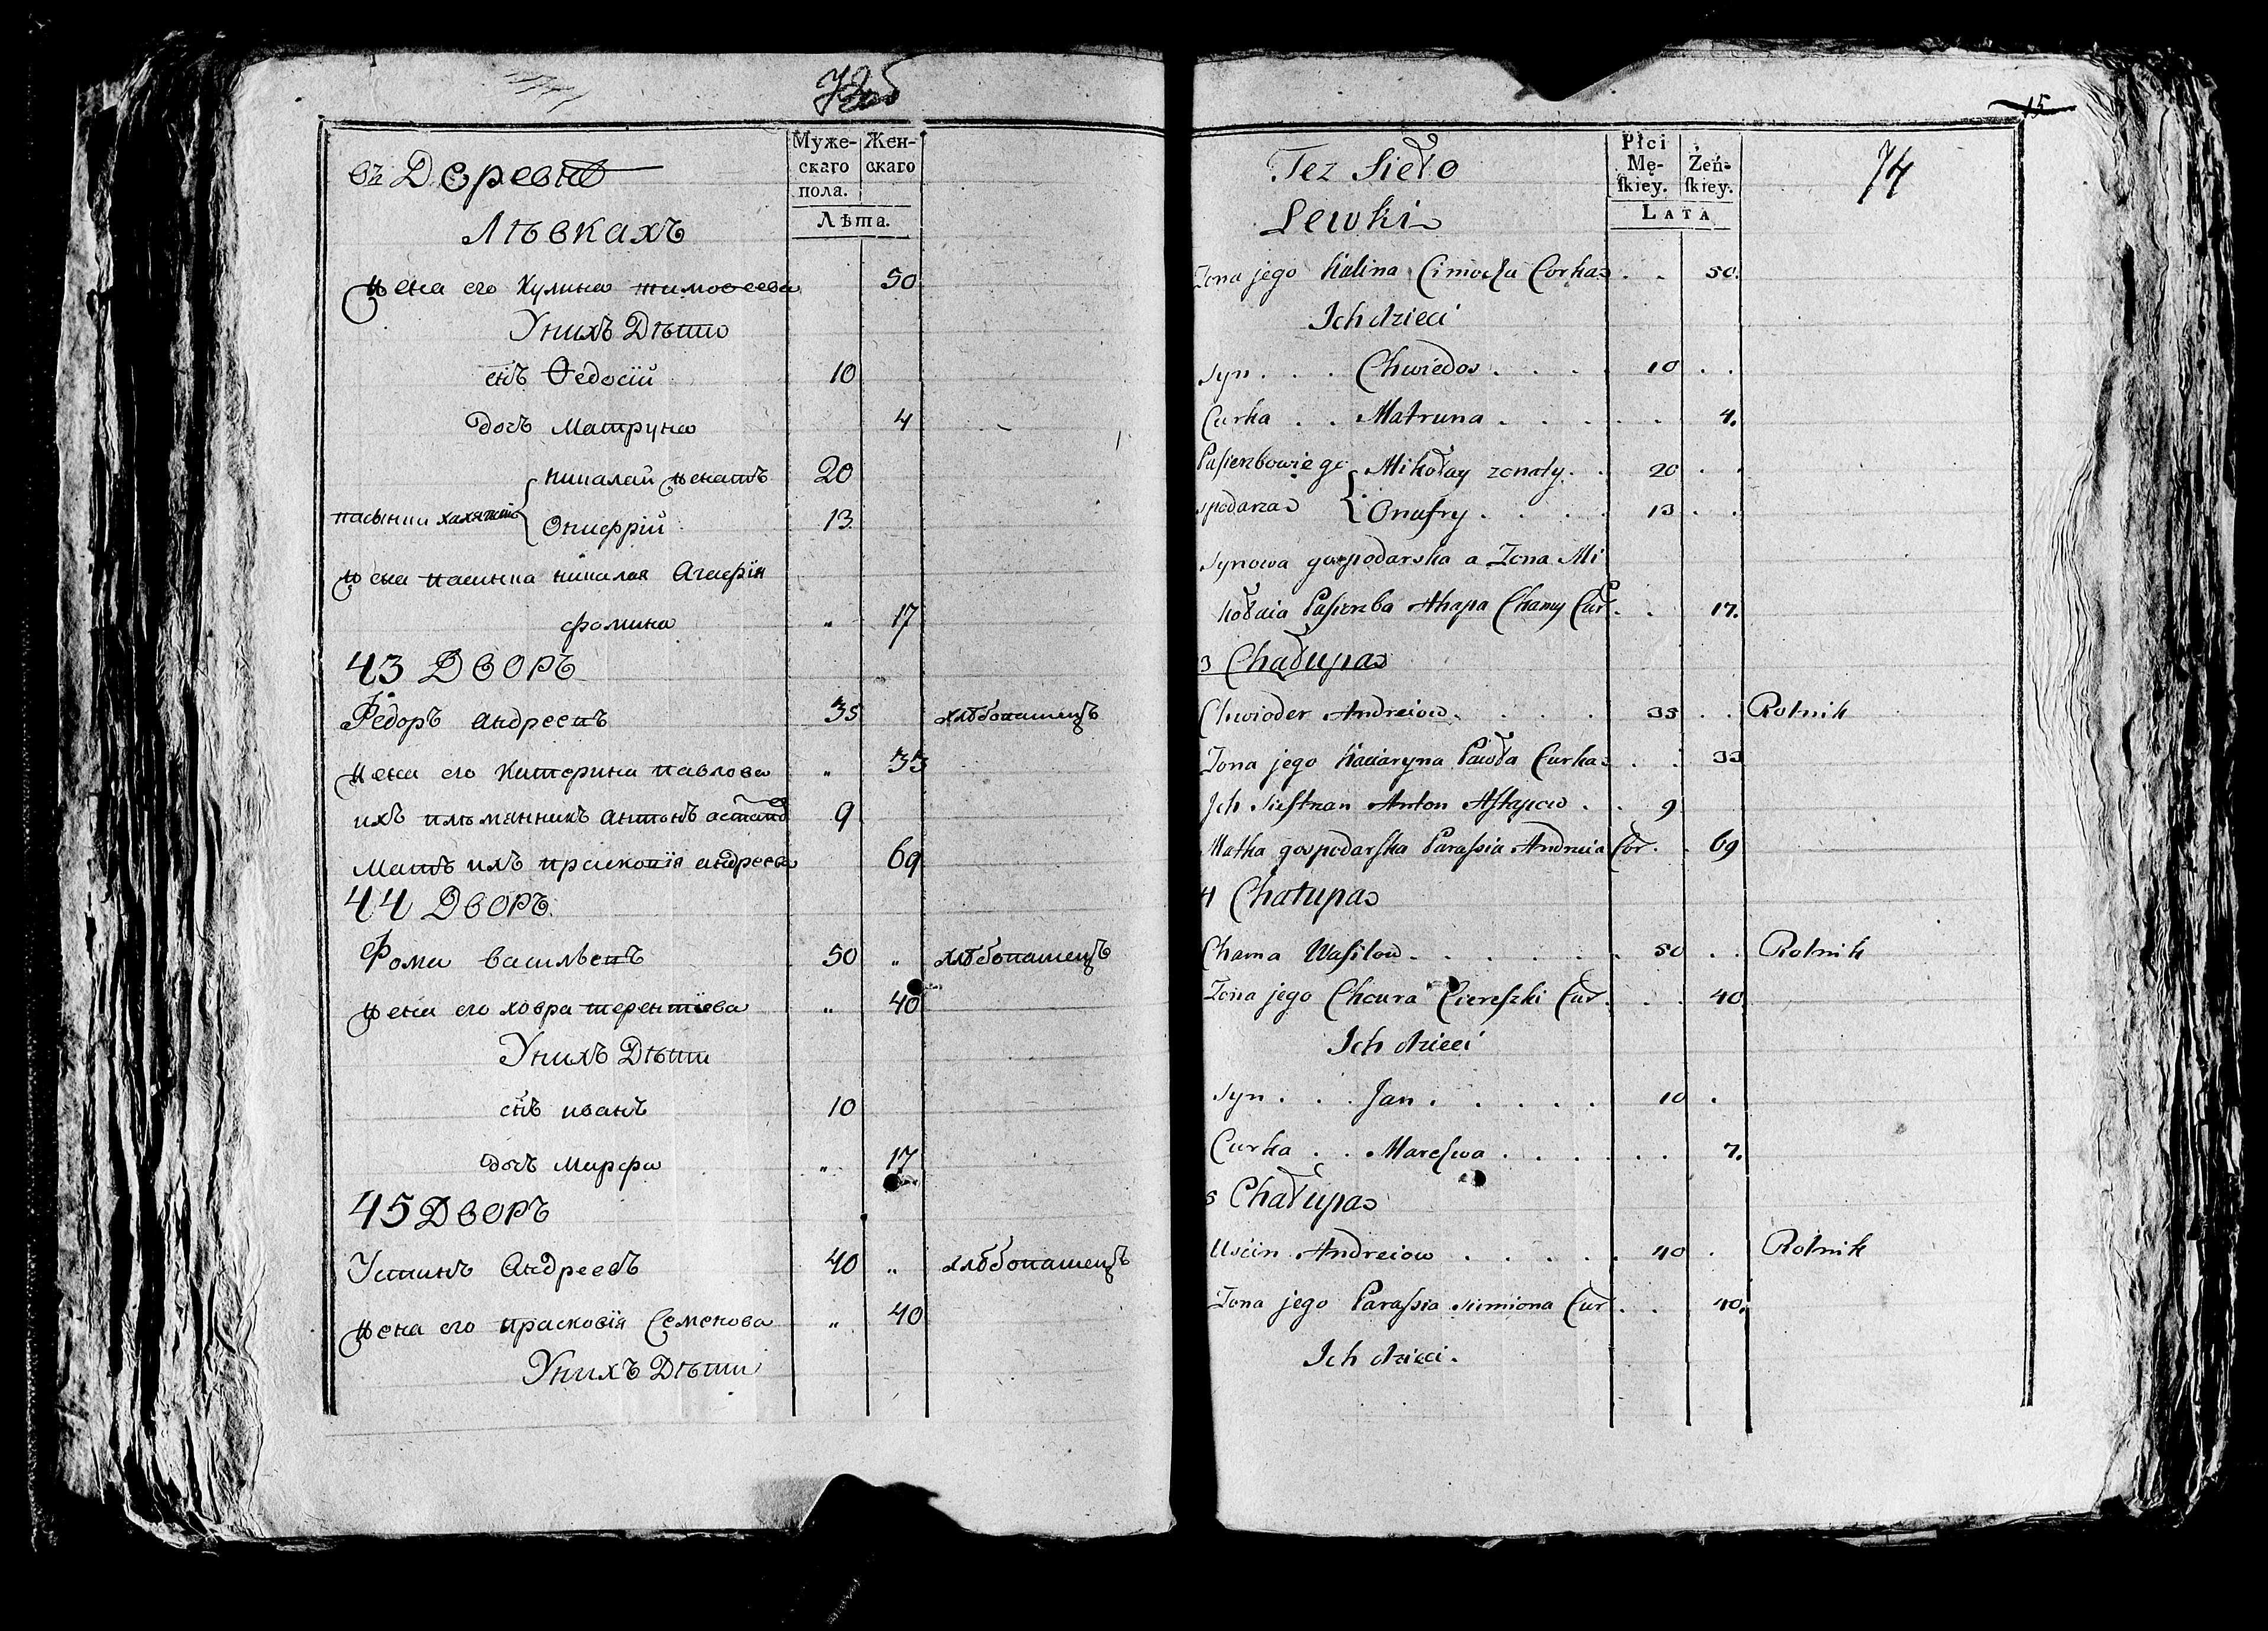 73об
въ Деревнѣ
Лѣвкахъ
Муже-
скаго
пола.
Жен-
скаго
Лѣта.
жена его Кулина тимовеева 50
Унихъ Дѣти
снъ Ѳедосій 10
дочь Матруна 4
николай женатъ 20
пасынки
Онифрій 13
жена пасынка николая Агафія
фомина " 17
43 Дворъ
Федоръ андреевъ 35 хлѣбопашецъ
жена его Катерина павлова " 33
ихъ племянникъ антонъ 9
Мать ихъ прасковія андреева 69
44 Дворъ
Фома васильевъ 50 " хлѣбопашецъ
жена его ховра терентіева " 40
Унихъ Дѣти
снъ иванъ 10
дочь Марфа " 17
45 Дворъ
Устинъ Андреевъ 40 " хлѣбопашецъ
жена его прасковія Семенова " 40
Унихъ Дѣти
15
74
Tez Sieło
Lewki
Płci
Mę-
ſkiey.
Żeń-
ſkiey.
LATA
Zona jego Kulina Cimocha Corka . . 50.
Ich dzieci
Syn . . . Chwiedos . . . . 10 . .
Curka . . Matruna . . . . . . 4.
Pasierzbowie go Mikołay zonaty . . 20 . .
spodarza Onufry . . . . 13 . .
Synowa gospodarska a Zona Mi
kołaia Pasierzba Ahapa Chamy Cur . . 17.
3 Chałupa
Chwioder Andreiow . . . . 35 . . Rolnik
Zona jego Kaciaryna Pawła Curka . . 33
Ich Siestrzan Anton Astapow . . 9
Matka gospodarska Parasia Andreia Cor . . 69
4 Chałupa
Chama Wasilow . . . . . . 50 . . Rolnik
Zona jego Chcura Ciereszki Cur . . . 40
Ich dzieci
Syn . . . Jan . . . . . 10 .
Curka . . Maresua . . . . . . 7.
5 Chałupa
Uscin Andreiow . . . . . 40 . Rolnik
Zona jego Parasia Simiona Cur . . 40.
Ich dzieci.